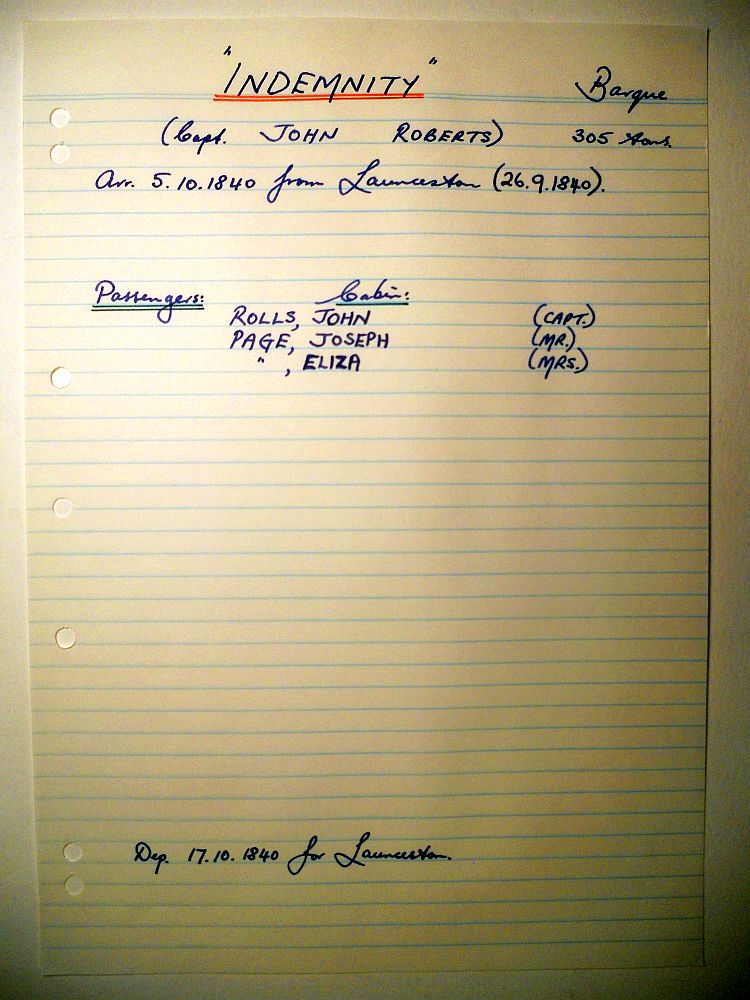 "INDEMNITY" Barque
(Capt. JOHN ROBERTS) 305 tons.
Arr. 5.10.1840 from Launceston (26.9.1840).
Passengers: Cabin:
ROLLS, JOHN (CAPT.)
PAGE, JOSEPH (MR.)
" , ELIZA (MRS.)
Dep. 17.10.1840 for Launceston.